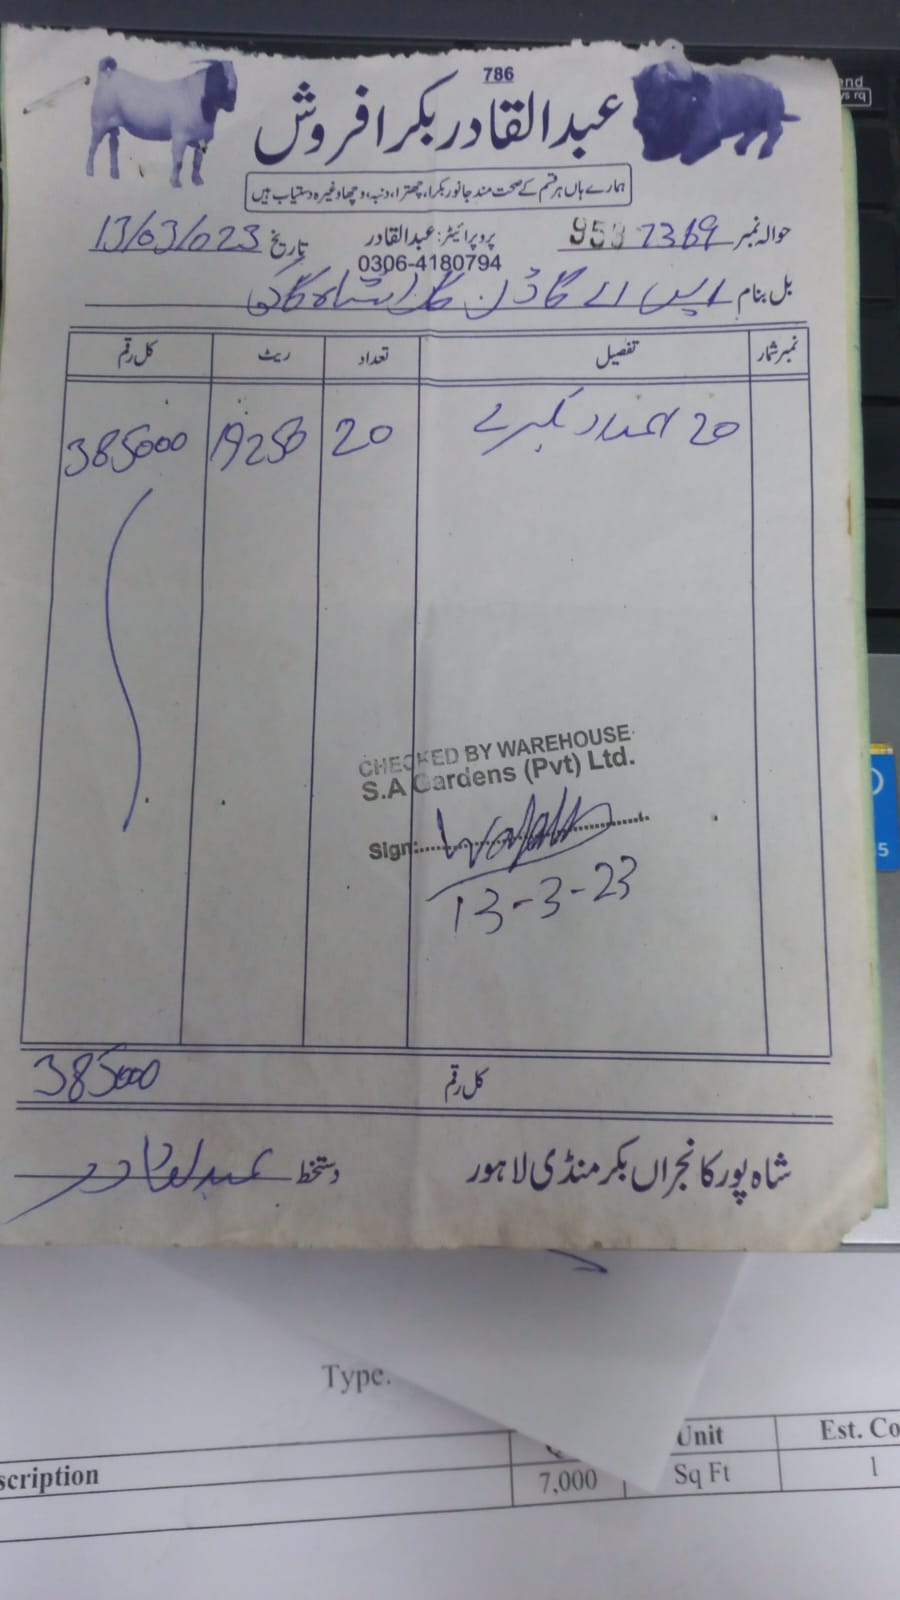 786
عبدالقادر بکرا فروش
ہمارے ہاں ہر قسم کے صحت مند جانور بکرا، چھترا، دنبہ، وچھا وغیرہ دستیاب ہیں
حوالہ نمبر 7369
پروپرائیٹر: عبدالقادر
0306-4180794
تاریخ 13/03/023
بل بنام ایس اے گارڈن کالا شاہ کاکو
نمبر شمار تفصیل تعداد ریٹ کل رقم
20 عدد بکرے 20 19250 385000
CHECKED BY WAREHOUSE
S.A Gardens (Pvt) Ltd.
Sign:
13-3-23
کل رقم 385000
شاہ پور کانجراں بکر منڈی لاہور
دستخط عبدالقادر
Type.
Unit Est. Co
scription 7,000 Sq Ft 1